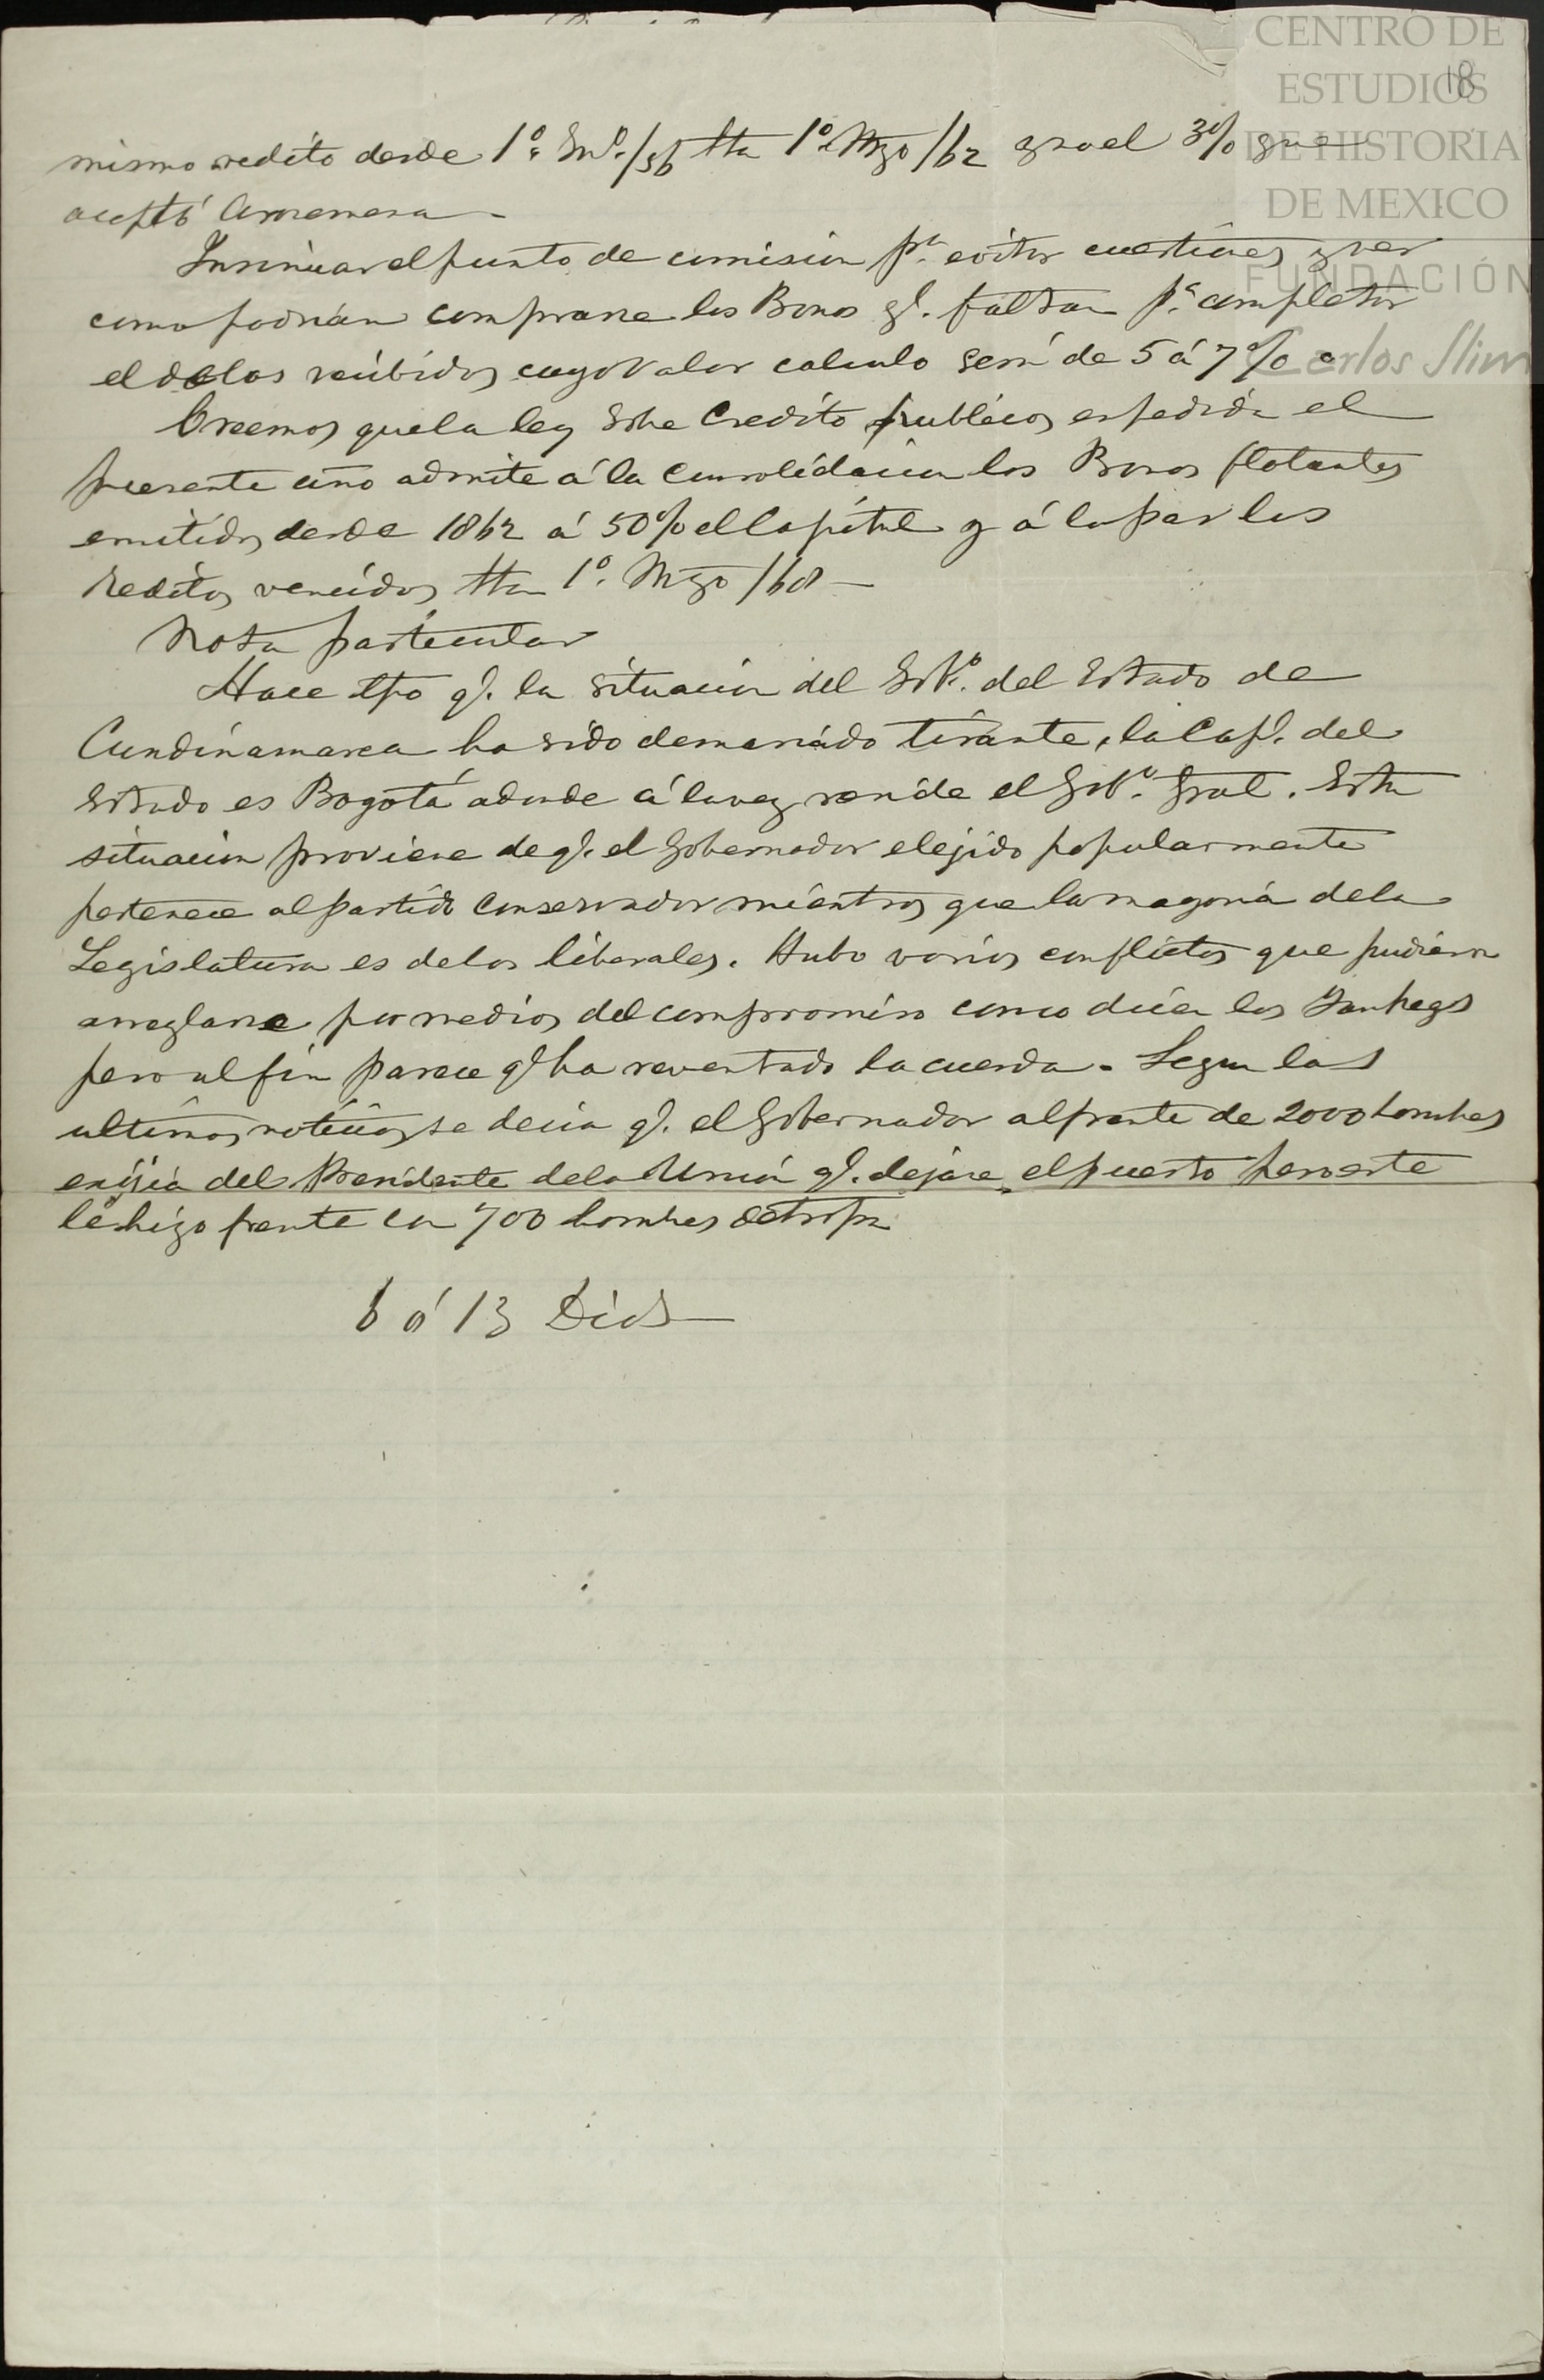 CENTRO DE
ESTUDIOS
DE HISTORIA
DE MEXICO
FUNDACIÓN
Carlos Slim
18
mismo redito desde 1º. En.º/56 hta 1º. Mzo/62 igual 3% que
aceptó
Insinuar el punto de comision p.ª evitar cuestiones y ver
como podrián comprarse los Bonos q.e faltan p.ª completar
el de los recibidos cuyo valor calculo será de 5 á 7%
Creemos que la ley sobre Credito publico, espedida el
presente año admite á la consolidacion los Bonos flotantes
emitidos desde 1862 á 50% el Capital y á la par los
reditos vencidos hta 1º. Mzo/68—
Nota particular
Hace tpo q.e la situacion del Gob.º del Estado de
Cundinamarca ha sido demaciado tirante, la Cap.l del
Estado es Bogotá adonde á la vez reside el Gob.º Gral. Esta
situacion proviene de q.e el Gobernador elejido popularmente
pertenece al partido conservador miéntras que la mayoriá de la
Legislatura es de los liberales. Hubo varios conflictos que pudieron
arreglarse por medios del compromiso como dicen los Yankeys
pero al fin parece q.e ha reventado la cuerda. Segun las
ultimas noticias se decia q.e el Gobernador al frente de 2000 hombres
exijiá del Presidente de la Union q.e dejase el puesto pero este
le hizo frente con 700 hombres de tropa
6 á 13 Dic